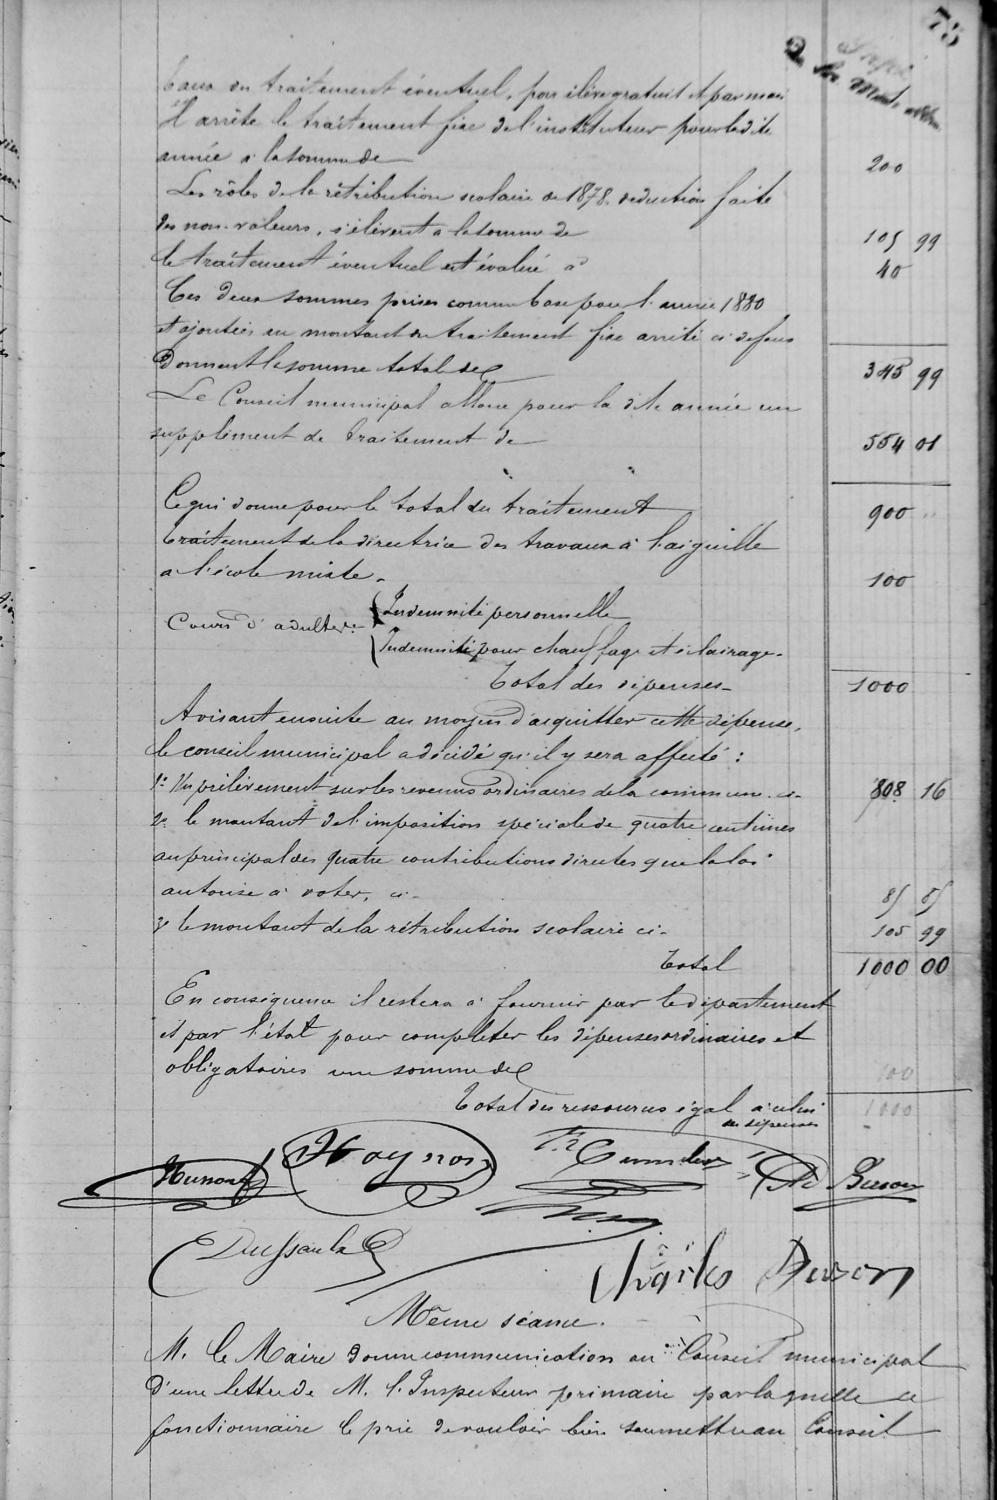 75
taux du traitement éventuel, par élève gratuit et par mois
Il arrête le traitement fixe de l'instituteur pour ladite
année à la somme de 200
Les rôles de la rétribution scolaire de 1878, déduction faite
des non-valeurs, s'élèvent à la somme de 105 99
le traitement éventuel est évalué à 40
Ces deux sommes prises comme base pour l'année 1880
et ajoutées au montant du traitement fixe arrêté ci dessus
donnent la somme totale de 345 99
Le Conseil municipal alloue pour la dite année un
supplément de traitement de 554 01
Ce qui donne pour le total du traitement 900 "
traitement de la directrice des travaux à l'aiguille
a l'école mixte. 100
Cours d'adultes { Indemnité personnelle
Indemnité pour chauffage et éclairage.
Total des dépenses 1000
Avisant ensuite au moyen d'acquitter cette dépense,
le conseil municipal a décidé qu'il y sera affecté :
1° Un prélèvement sur les revenus ordinaires de la commune ci 808 16
2° le montant de l'imposition spéciale de quatre centimes
au principal des quatre contributions directes que la loi
autorise à voter, ci. 85 85
3° le montant de la rétribution scolaire ci. 105 99
Total 1000 00
En conséquence il restera à fournir par le département
et par l'état pour compléter les dépenses ordinaires et
obligatoires une somme de 100
Total des ressources égal à celui 1000
des dépenses
Husson
Dussaula
Charles Buson
Même séance.
M. le Maire donne communication au Conseil municipal
d'une lettre de M. l'Inspecteur primaire par laquelle ce
fonctionnaire le prie de vouloir bien soumettre au Conseil